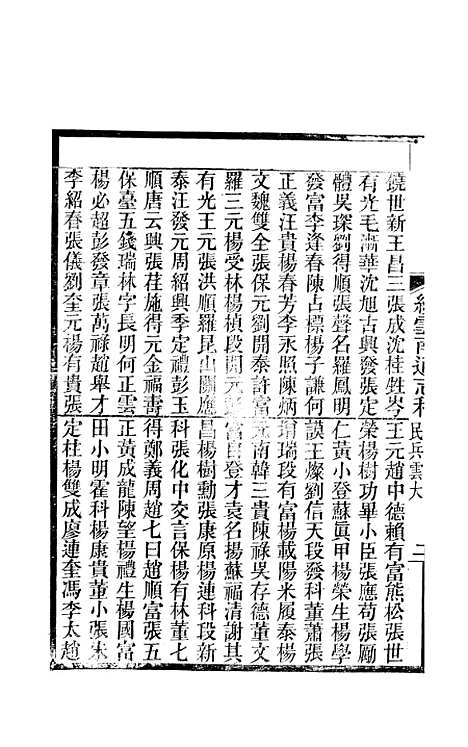 續雲南通志稿 民兵雲大 二
鐃世新王昌三張成沈桂甡岑王元趙中德賴有富熊松張世
有光毛漸華沈旭古興發張定榮楊樹功畢小臣張應苟張勵
體吳琛劉得順張聲名羅鳳明仁黃小登蘇眞甲楊榮生楊學
發富李逢春陳占標楊子謙何謨王燦劉信天段發科董蕭張
正義汪貴楊春芳李永照陳炳瑞段有富楊載陽米履泰楊
文魏雙全張保元劉開泰許富元南韓三貴陳祿吳存德董文
羅三元楊受林楊楨段開元富自登才袁名揚蘇福清謝其
有光王元張洪順羅昆山關應昌楊樹勳張康原楊連科段新
泰汪發元周紹興季定禮彭玉科張化中交言保楊有林董七
順唐云興張荏施得元金福壽得鄭義周趙七曰趙順富張五
保臺五錢瑞林字長明何正雲正黃成龍陳望楊禮生楊國富
楊必超彭發章張萬祿趙舉才田小明霍科楊康貴董小張末
李紹春張儀劉奎元楊有貴張定桂楊雙成廖連奎馮李太趙